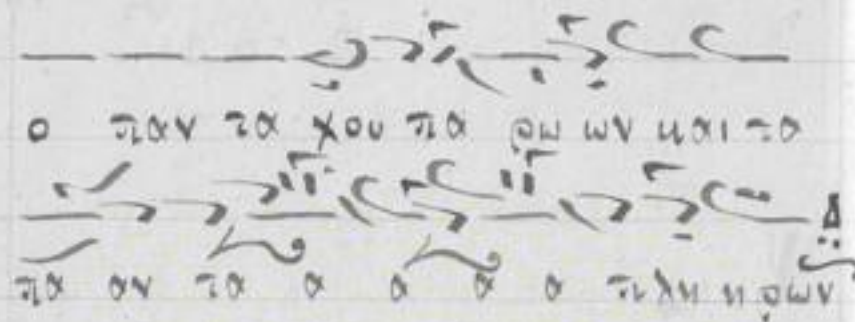 ο παν τα χου πα ρω ων και τα
πα αν τα α α α α πλη η ρων